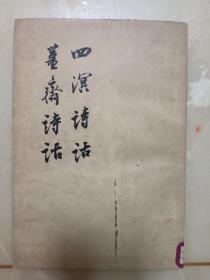 四溟诗话
薑斋诗话